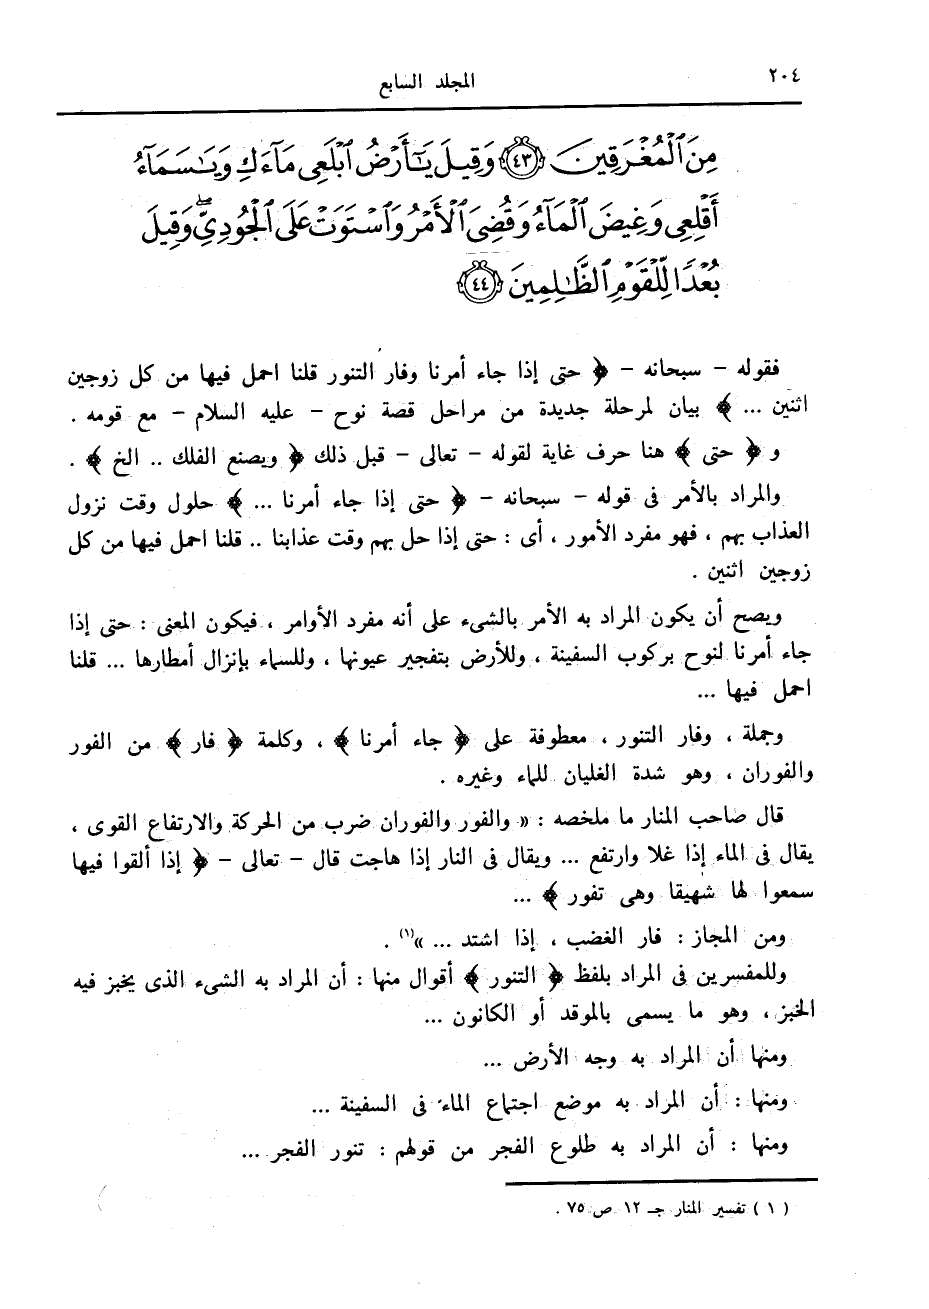 ٢٠٤
المجلد السابع
مِنَ ٱلْمُغْرَقِينَ ٤٣ وَقِيلَ يَٰٓأَرْضُ ٱبْلَعِى مَآءَكِ وَيَٰسَمَآءُ
أَقْلِعِى وَغِيضَ ٱلْمَآءُ وَقُضِىَ ٱلْأَمْرُ وَٱسْتَوَتْ عَلَى ٱلْجُودِىِّ ۖ وَقِيلَ
بُعْدًا لِّلْقَوْمِ ٱلظَّٰلِمِينَ ٤٤
فقوله - سبحانه - ﴿ حتى إذا جاء أمرنا وفار التنور قلنا احمل فيها من كل زوجين
اثنين ... ﴾ بيان لمرحلة جديدة من مراحل قصة نوح - عليه السلام - مع قومه .
و ﴿ حتى ﴾ هنا حرف غاية لقوله - تعالى - قبل ذلك ﴿ ويصنع الفلك .. الخ ﴾ .
والمراد بالأمر فى قوله - سبحانه - ﴿ حتى إذا جاء أمرنا ... ﴾ حلول وقت نزول
العذاب بهم ، فهو مفرد الأمور ، أى : حتى إذا حل بهم وقت عذابنا .. قلنا احمل فيها من كل
زوجين اثنين .
ويصح أن يكون المراد به الأمر بالشىء على أنه مفرد الأوامر ، فيكون المعنى : حتى إذا
جاء أمرنا لنوح بركوب السفينة ، وللأرض بتفجير عيونها ، وللسماء بإنزال أمطارها ... قلنا
احمل فيها ...
وجملة ، وفار التنور ، معطوفة على ﴿ جاء أمرنا ﴾ ، وكلمة ﴿ فار ﴾ من الفور
والفوران ، وهو شدة الغليان للماء وغيره .
قال صاحب المنار ما ملخصه : « والفور والفوران ضرب من الحركة والارتفاع القوى ،
يقال فى الماء إذا غلا وارتفع ... ويقال فى النار إذا هاجت قال - تعالى - ﴿ إذا ألقوا فيها
سمعوا لها شهيقا وهى تفور ﴾ ...
ومن المجاز : فار الغضب ، إذا اشتد ... »(١) .
وللمفسرين فى المراد بلفظ ﴿ التنور ﴾ أقوال منها : أن المراد به الشىء الذى يخبز فيه
الخبز ، وهو ما يسمى بالموقد أو الكانون ...
ومنها أن المراد به وجه الأرض ...
ومنها : أن المراد به موضع اجتماع الماء فى السفينة ...
ومنها : أن المراد به طلوع الفجر من قولهم : تنور الفجر ...
( ١ ) تفسير المنار جـ ١٢ ص ٧٥ .